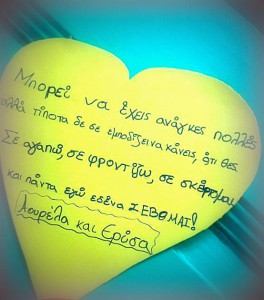 Μπορεί να έχεις ανάγκες πολλές
αλλά τίποτα δε σε εμποδίζει να κάνεις, ότι θες
Σε αγαπώ, σε φροντίζω, σε σκέφτομαι
και πάντα εγώ εσένα ΣΕΒΟΜΑΙ!
Λουρέλα και Ερύσα